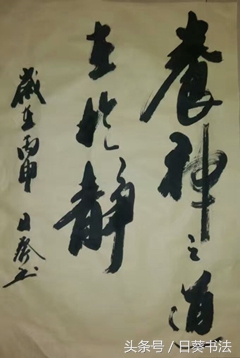 養神之道
在於静
歲在丙申日葵书
头条号／日葵书法